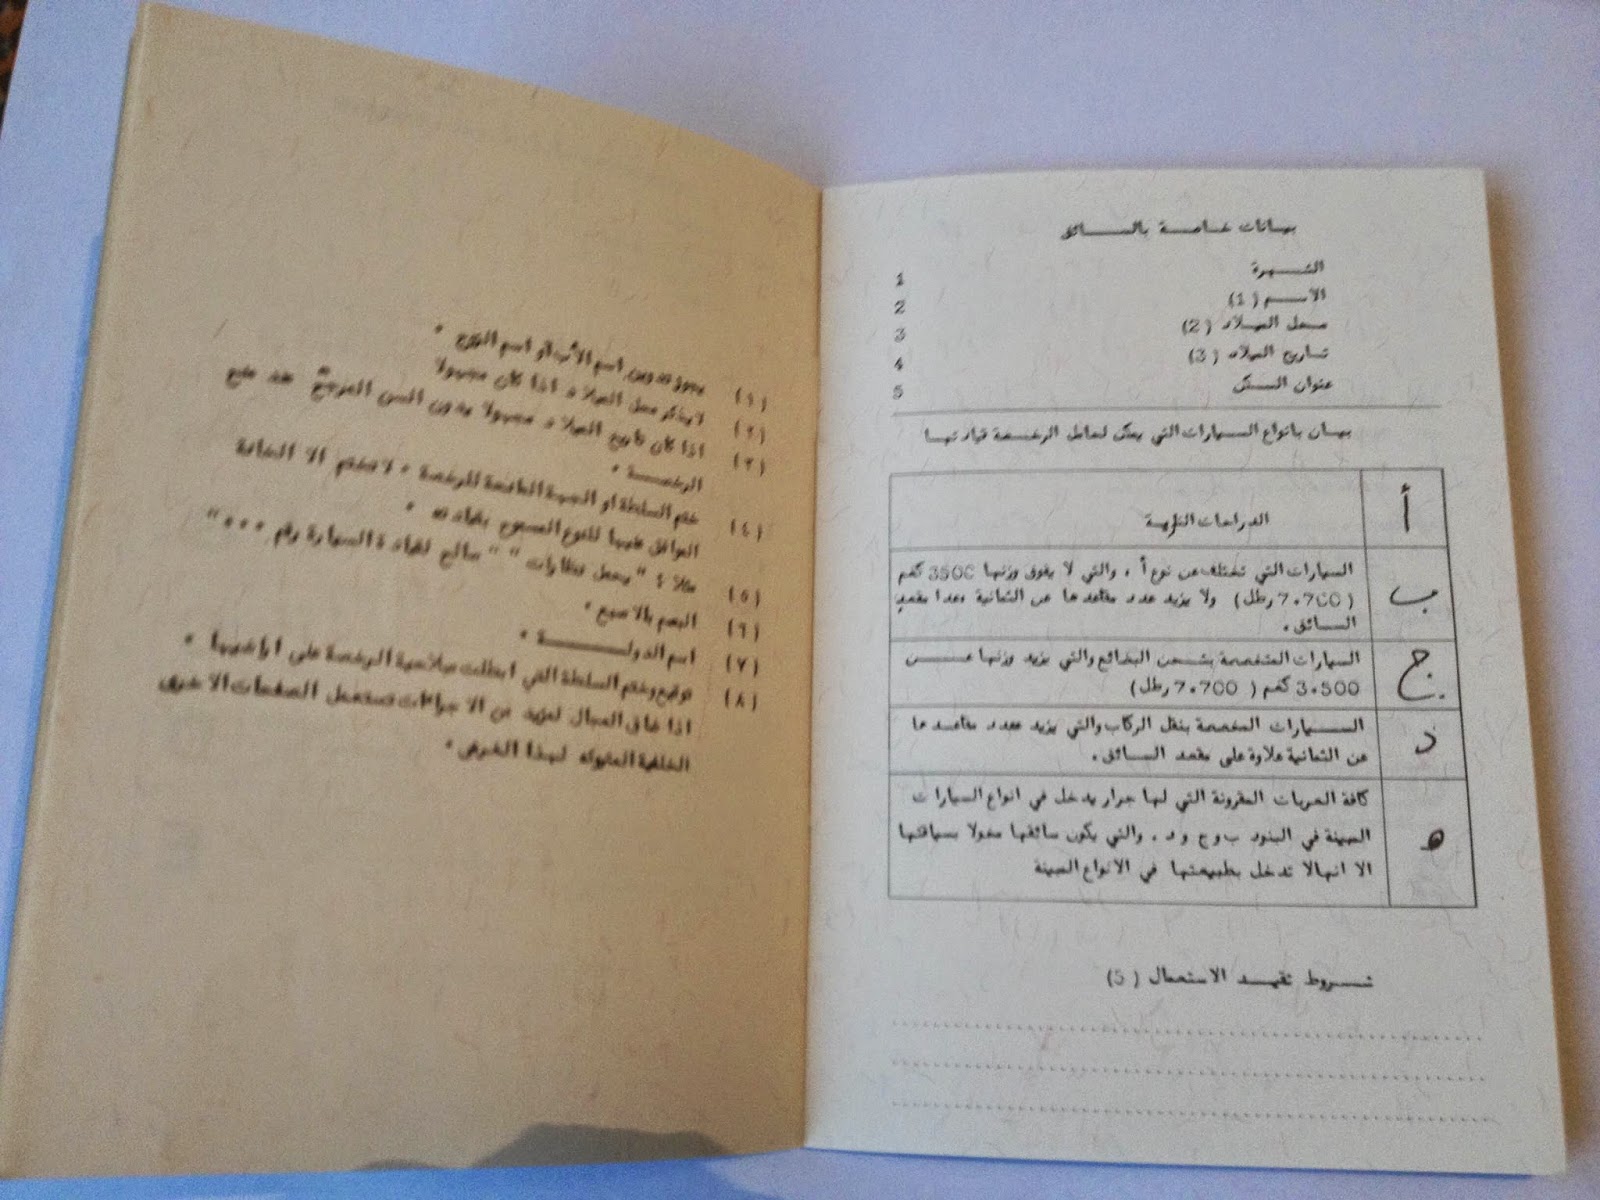 بيانات خاصة بالسائق
الشهرة 1
الاسم (1) 2
محل الميلاد (2) 3
تاريخ الميلاد (3) 4
عنوان السكن 5
بيان بانواع السيارات التي يمكن لحامل الرخصة قيادتها
أ الدراجات النارية
ب السيارات التي تختلف عن نوع أ ، والتي لا يفوق وزنها 3500 كغم
(7.700 رطل) ولا يزيد عدد مقاعدها عن الثمانية معدا مقعد
السائق .
ج السيارات المتخصصة بشحن البضائع والتي يزيد وزنها عن
3.500 كغم ( 7.700 رطل)
د السيارات المخصصة بنقل الركاب والتي يزيد عدد مقاعدها
عن الثمانية علاوة على مقعد السائق .
ه كافة العربات المقرونة التي لها جرار يدخل في انواع السيارات
المبينة في البنود ب و ج و د ، والتي يكون سائقها مخولا بسياقتها
الا انها لا تدخل بطبيعتها في الانواع المبينة
شروط تقييد الاستعمال (5)
(١) يجوز تدوين اسم الأب أو اسم الزوج .
(٢) لا يذكر محل الميلاد اذا كان مجهولا
(٣) اذا كان تاريخ الميلاد مجهولا يدون السن المرجح عند منح
الرخصة .
(٤) ختم السلطة او الجهة المانحة للرخصة . لا تختم الا الخانة
الموافق عليها للنوع المسموح بقيادته .
(٥) مثلا : " يحمل نظارات " " صالح لقيادة السيارة رقم ... "
(٦) البصم بالاصبع .
(٧) اسم الدولة .
(٨) توقيع وختم السلطة التي ابطلت صلاحية الرخصة على اراضيها .
اذا ضاق المجال لمزيد من الاجراءات تستعمل الصفحات الاخرى
لهذا الغرض .